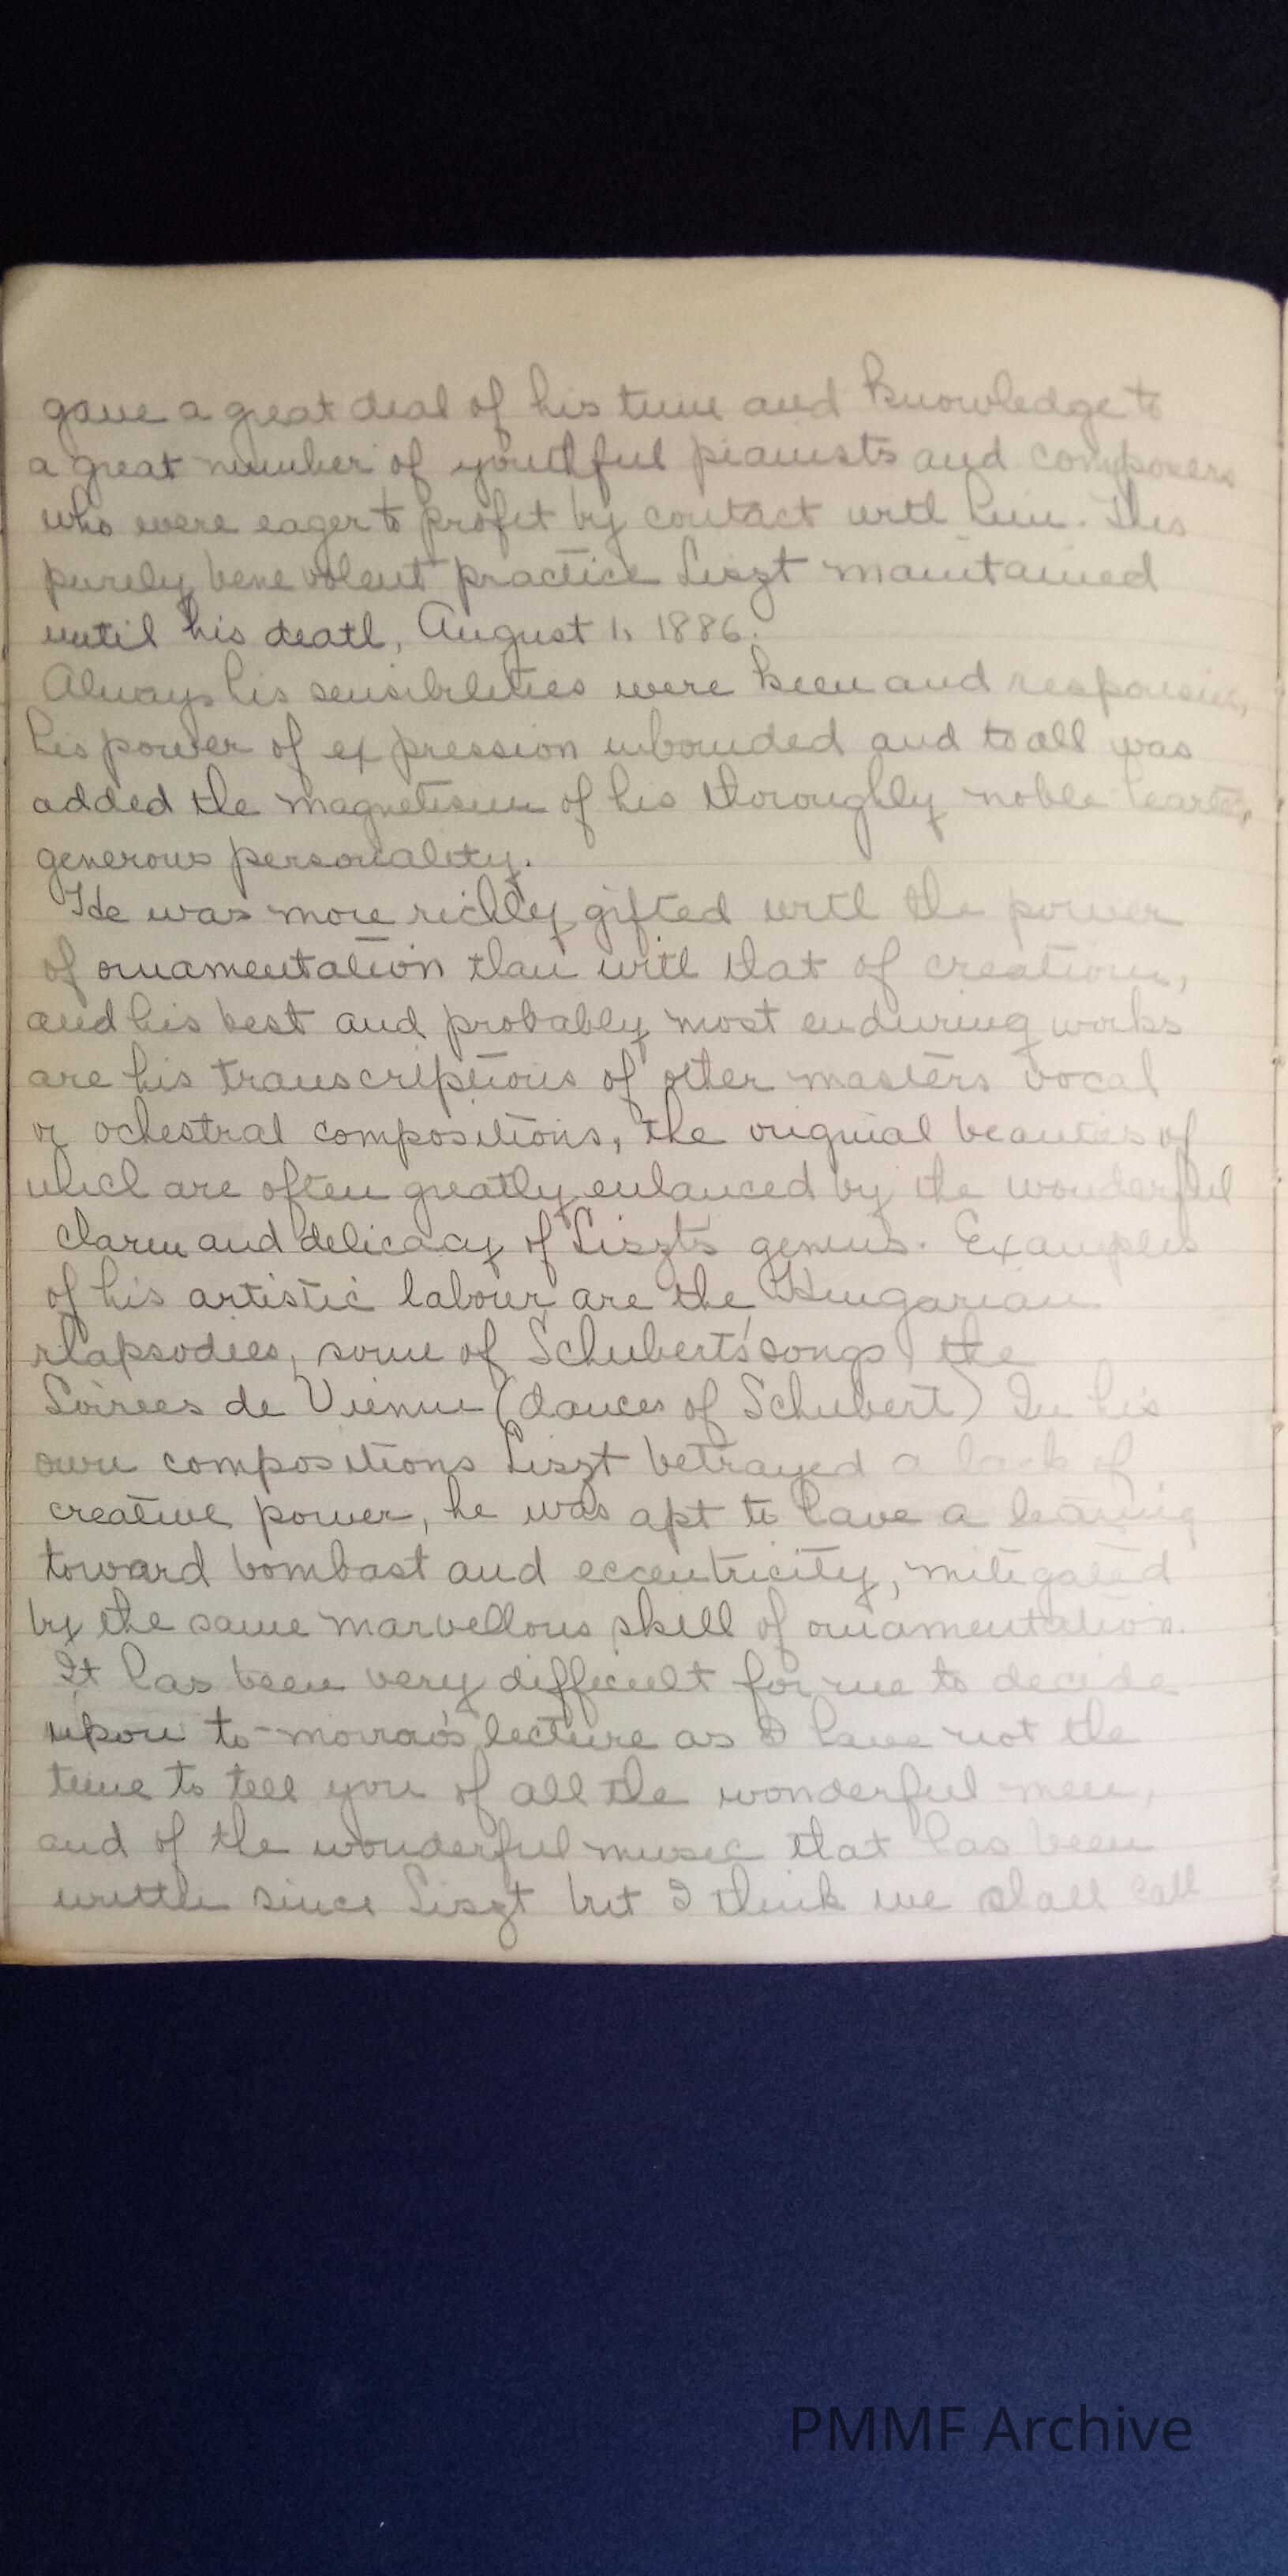 gave a great deal of his time and knowledge to
a great number of youthful pianists and composers
who were eager to profit by contact with him. This
purely benevolent practice Liszt maintained
until his death, August 1, 1886.
Always his sensibilities were keen and responsive,
his power of expression unbounded and to all was
added the magnetism of his thoroughly noble hearted,
generous personality.
He was more richly gifted with the power
of ornamentation than with that of creation,
and his best and probably most enduring works
are his transcriptions of other masters vocal
or ochestral compositions, the original beauties of
which are often greatly enhanced by the wonderful
charm and delicacy of Liszt's genius. Examples
of his artistic labour are the Hungarian
rhapsodies, some of Schubert's songs, the
Soirees de Vienne (dances of Schubert) In his
own compositions Liszt betrayed a lack of
creative power, he was apt to have a leaning
toward bombast and eccentricity, mitigated
by the same marvellous skill of ornamentation.
It has been very difficult for me to decide
upon to-morrow's lecture as I have not the
time to tell you of all the wonderful men,
and of the wonderful music that has been
written since Liszt but I think we shall call
PMMF Archive